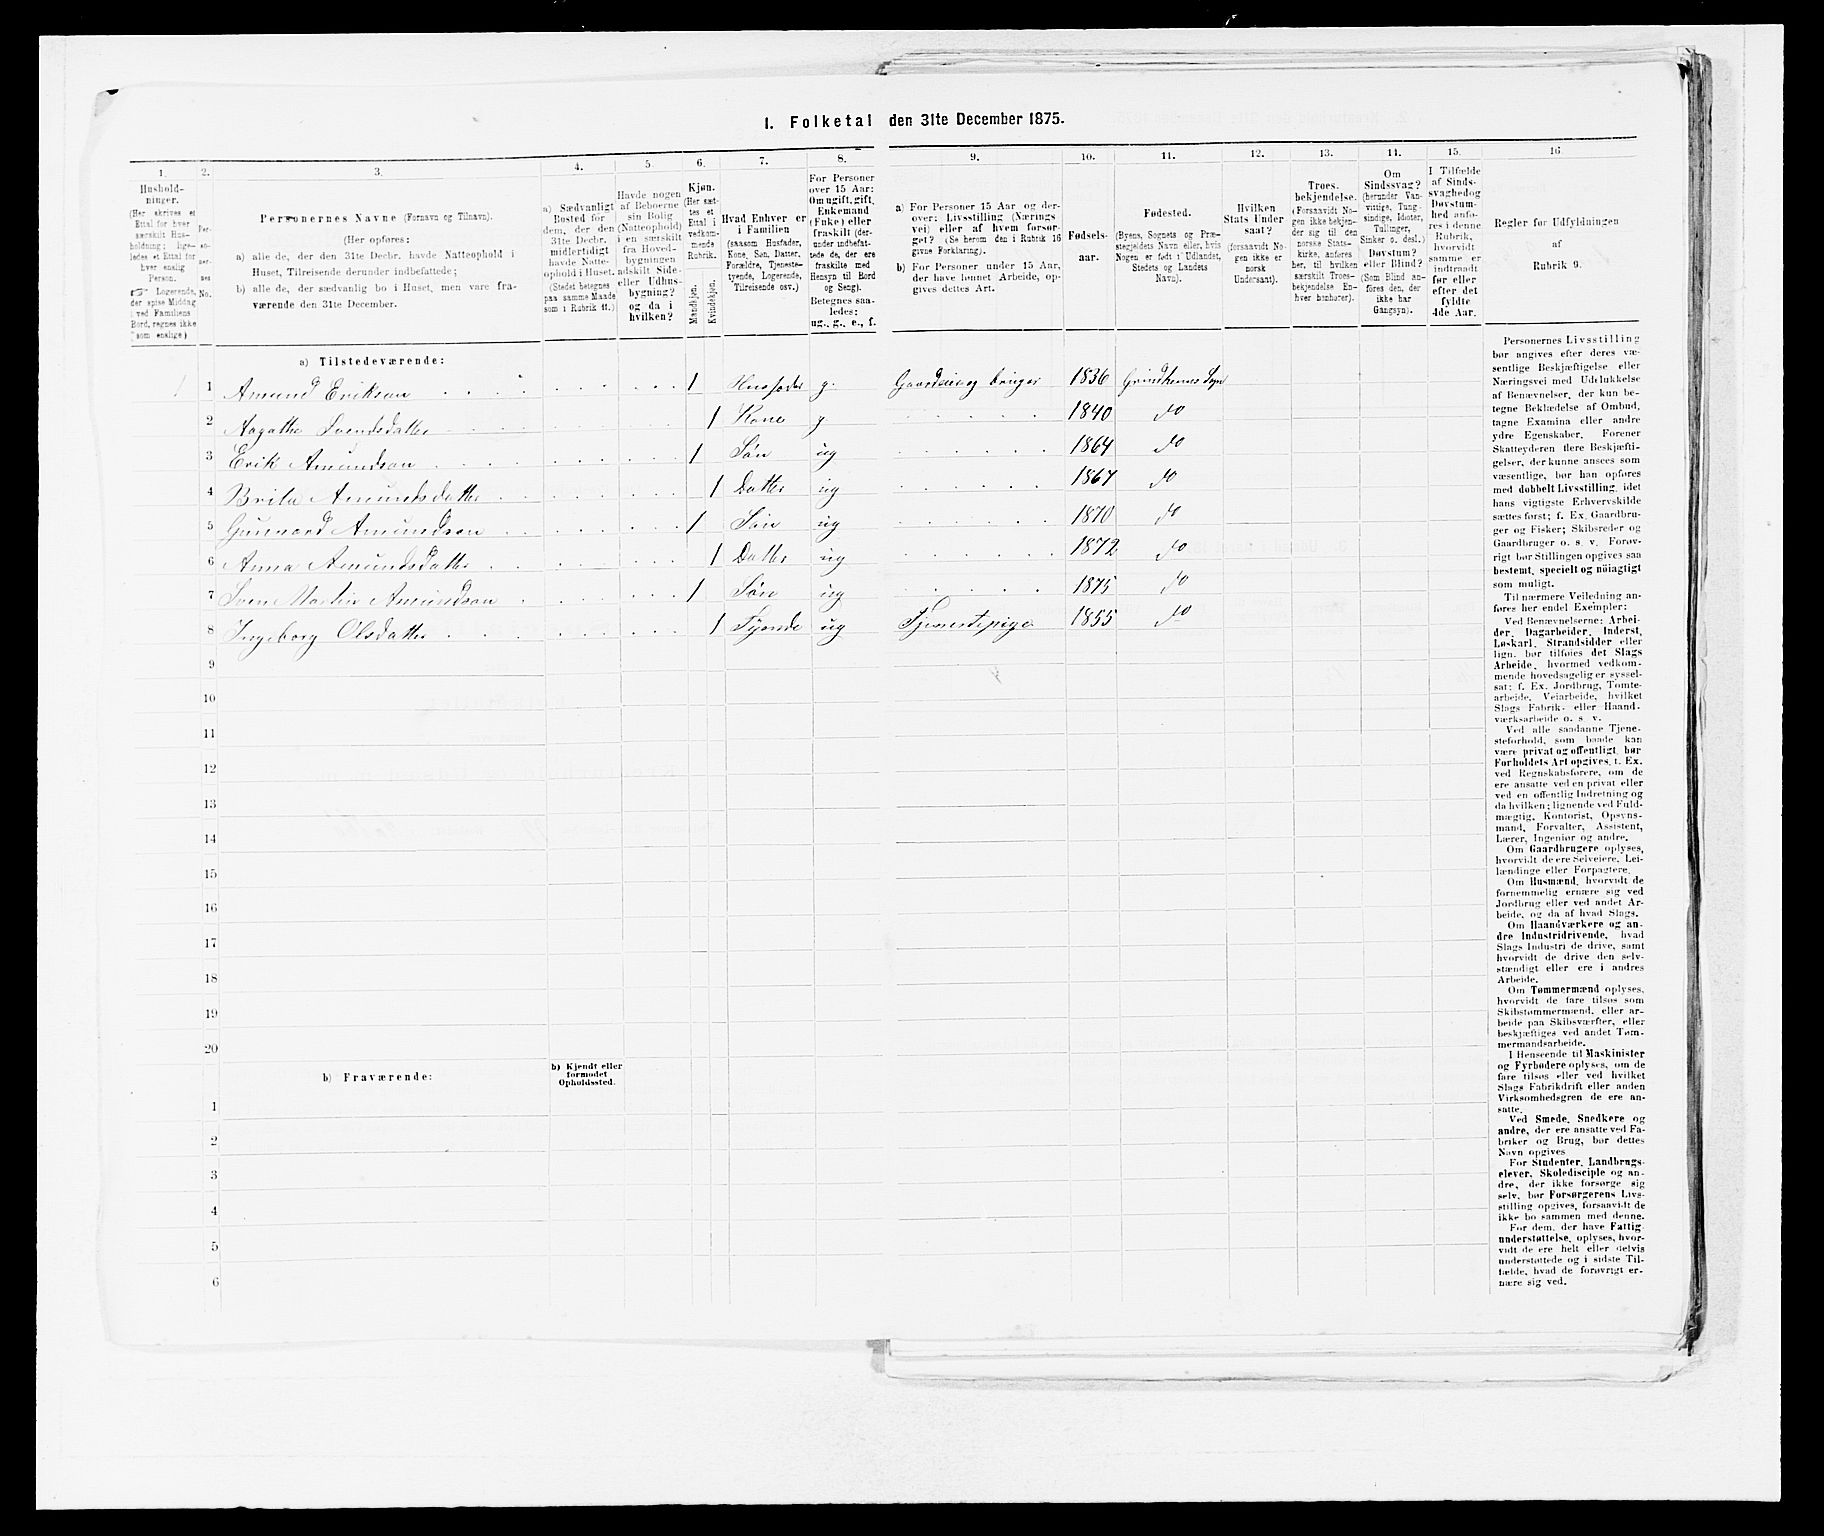 1. Folketal den 31te December 1875.
1. 2. 3. 4. 5. 6. 7. 8. 9. 10. 11. 12. 13. 14. 15. 16.
Hushold-
ninger.
(Her skrives et
Ettal for hver
særskilt Hus-
holdning; lige-
ledes et Ettal for
hver enslig
Person.
☞ Logerende,
der spise Middag
ved Familiens
Bord, regnes ikke
som enslige)
Per-
so-
ner-
nes
No.
Personernes Navne (Fornavn og Tilnavn).
(Her opføres:
a) alle de, der den 31te Decbr. havde Natteophold i
Huset, Tilreisende derunder indbefattede;
b) alle de, der sædvanlig bo i Huset, men vare fra-
værende den 31te December.
a) Sædvanligt
Bosted for
dem, der den
31te Decbr.
midlertidigt
havde Natte-
ophold i Huset.
(Stedet betegnes
paa samme Maade
som i Rubrik 11.)
Havde nogen
af Beboerne
sin Bolig
(Natteophold)
i en særskilt
fra Hoved-
bygningen
adskilt Side-
eller Udhus-
bygning?
og da i
hvilken?
Kjøn.
(Her sæt-
tes et
Ettal i
vedkom-
mende
Rubrik.
Mandkjøn.
Kvindekjøn.
Hvad Enhver er
i Familien
(saasom Husfader,
Kone, Søn, Datter,
Forældre, Tjeneste-
tyende, Logerende,
Tilreisende osv.)
For Personer
over 15 Aar:
Om ugift, gift,
Enkemand
(Enke) eller
fraskilt (der-
under indbefat-
tede de, der ere
fraskilte med
Hensyn til Bord
og Seng).
Betegnes saa-
ledes:
ug., g., e., f.
a) For Personer 15 Aar og der-
over: Livsstilling (Nærings
vei) eller af hvem forsør-
get? (Se herom den i Rubrik 16
givne Forklaring).
b) For Personer under 15 Aar,
der have lønnet Arbeide, op-
gives dettes Art.
Fødsels-
aar.
Fødested.
(Byens, Sognets og Præ-
stegjeldets Navn eller, hvis
Nogen er født i Udlandet,
Stedets og Landets
Navn).
Hvilken
Stats Under
saat?
(forsaavidt No-
gen ikke er
norsk
Undersaat).
Troes.
bekjendelse.
(Forsaavidt No-
gen ikke bekjen-
der sig til den
norske Stats-
kirke, anføres
her, til hvilken
særskilt Troes-
bekjendelse En-
hver henhører).
Om
Sindssvag?
(herunder Van-
vittige, Tung-
sindige, Idioter,
Tullinger,
Sinker o. desl.)
Døvstum?
eller Blind?
(Som Blind an-
føres den, der
ikke har
Gangsyn).
I Tilfælde
af Sinds-
svaghed og
Døvstum-
hed anfø-
res i denne
Rubrik,
hvorvidt
samme er
indtraadt
før eller
efter det
fyldte
4de Aar.
Regler før Udfyldningen
af
Rubrik 9.
a) Tilstedeværende:
1 1 Amund Erikson 1 Husfader g. Gaardeier og bruger 1836 Grindhems Sogn
2 Aagathe Svendsdatter 1 Kone g 1840 do
3 Erik Amundson 1 Søn ug 1864 do
4 Brita Amundsdatter 1 Datter ug 1867 do
5 Gunnard Amundson 1 Søn ug 1870 do
6 Anna Amundsdatter 1 Datter ug 1872 do
7 Sven Martin Amundson 1 Søn ug 1875 do
8 Ingeborg Olsdatter 1 Tyende ug Tjenestepige 1855 do
9
10
11
12
13
14
15
16
17
18
19
20
b) Fraværende:
b) Kjendt eller
formodet
Opholdssted.
1
2
3
4
5
6
Personernes Livsstilling
bør angives efter deres væ-
sentlige Beskjæftigelse eller
Næringsvei med Udelukkelse
af Benævnelser, der kun be-
tegne Beklædelse af Ombud,
tagne Examina eller andre
ydre Egenskaber. Forener
Skatteyderen flere Beskjæfti-
gelser, der kunne ansees som
væsentlige, bør han opføres
med dobbelt Livsstilling, idet
hans vigtigste Erhvervskilde
sættes først; f. Ex. Gaardbru-
ger og Fisker; Skibsreder og
Gaardbruger o. s. v. Forøv-
rigt bør Stillingen opgives saa
bestemt, specielt og nöiagtigt
som muligt.
Til nærmere Veiledning an-
føres her endel Exempler:
Ved Benævnelserne: Arbei-
der, Dagarbeider, Inderst,
Løskarl, Strandsidder eller
lign. bør tilføies det Slags
Arbeide, hvormed vedkom-
mende hovedsagelig er syssel-
sat; f. Ex. Jordbrug, Tømte-
arbeide, Veiarbeide, hvilket
Slags Fabrik- eller Haand-
værksarbeide o. s. v.
Ved alle saadanne Tjene-
steforhold, som baade kan
være privat og offentligt, bør
Forholdets Art opgives, t. Ex.
ved Regnskabsførere, om de
ere ansatte ved en privat eller
ved en offentlig Indretning og
da hvilken; lignende ved Fuld-
mægtig, Kontorist, Opsyns-
mand, Forvalter, Assistent,
Lærer, Ingeniør og andre.
Om Gaardbrugere oplyses,
hvorvidt de ere Selveiere, Lei-
lændinge eller Forpagtere.
Om Husmænd, hvorvidt de
fornemmelig ernære sig ved
Jordbrug eller ved andet Ar-
beide, og da af hvad Slags.
Om Haandværkere og an-
dre Industridrivende, hvad
Slags Industri de drive, samt
hvorvidt de drive den selv-
stændigt eller ere i andres
Arbeide.
Om Tømmermænd oplyses,
hvorvidt de fare tilsøs som
Skibstømmermænd, eller ar-
beide paa Skibsværfter, eller
beskjæftiges ved andet Tøm-
mermandsarbeide.
I Henseende til Maskinister
og Fyrbødere oplyses, om de
fare tilsøs eller ved hvilket
Slags Fabrikdrift eller anden
Virksomhedsgren de ere an-
satte.
Ved Smede, Snedkere og
andre, der ere ansatte ved Fa-
briker og Brug, bør dettes
Navn opgives
For Studenter, Landbrugs-
elever, Skoledisciple og an-
dre, der ikke forsørge sig
selv, bør Forsørgerens Livs-
stilling opgives, forsaavidt de
ikke bo sammen med denne.
For dem, der have Fattig
understøttelse, oplyses, hvor-
vidt de ere helt eller delvis
understøttede og i sidste Til-
fælde, hvad de forøvrigt er-
nære sig ved.